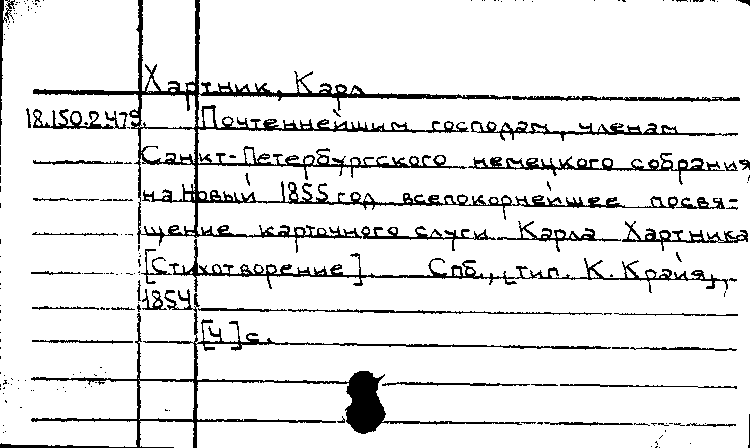 Хартник, Карл
18.150.2.479. Почтеннейшим господам, членам
Санкт-Петербургского немецкого собрания
на Новый 1855 год всепокорнейшее посвя-
щение карточного слуги Карла Хартника
[Стихотворение]. Спб., [тип. К. Крайя],
1854
[4] с.